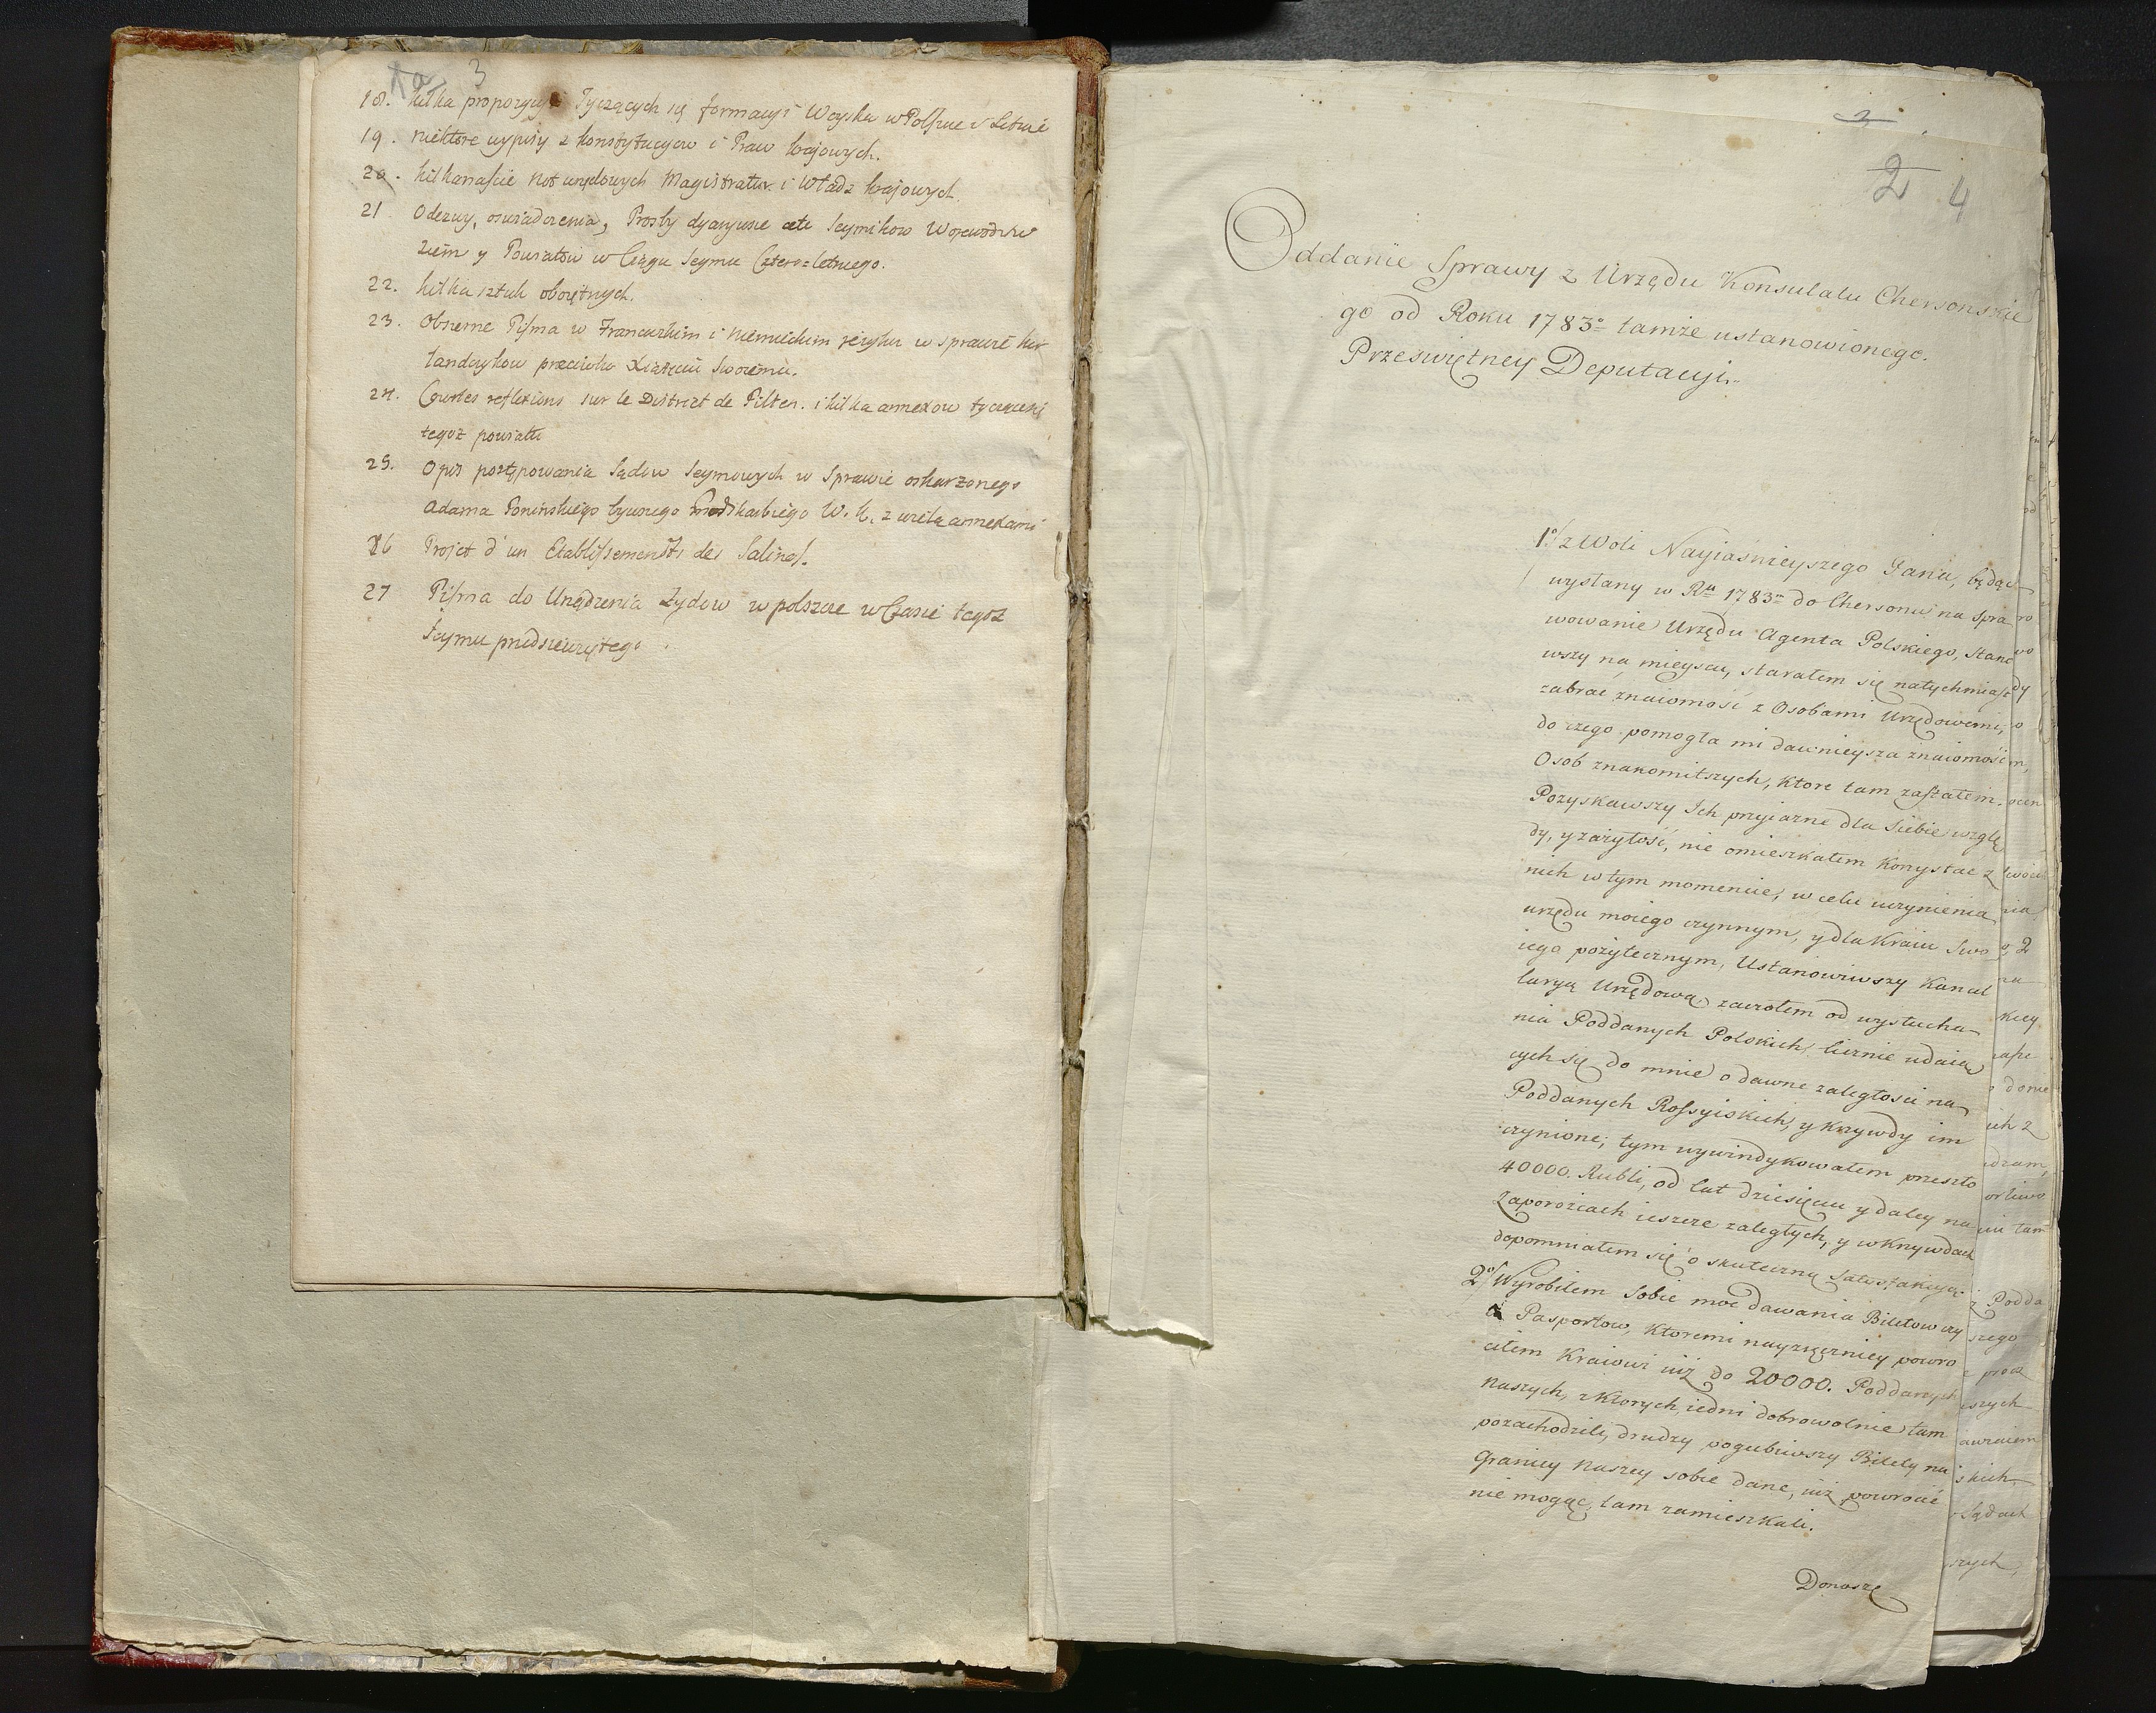 3
18. kilka propozycyi Tyczących się formacyi Woyska w Polszcze i Litwie
19. niektóre wypisy z konstytucyow i Praw krajowych.
20. kilkanaście not urzędowych Magistratur i Władz krajowych.
21 Odezwy, oswiadczenia, Prosby dyaryusze akta Seymikow Wojewodztw
Ziem y Powiatów w Ciągu Seymu Cztero=letniego.
22. kilka sztuk obojętnych.
23. Obszerne Pisma w Francuzkim i Niemieckim języku w sprawie kur
landczykow przeciwko Xiążęciu Swoiemu.
24. Courtes reflexions sur le District de Pilten. i kilka annexow tyczących
tegoż powiatu
25. Opis postępowania Sądow Seymowych w Sprawie oskarzonego
Adama Ponińskiego bywszego Podskarbiego W. K. z wielą annexami
26 Projet d'un Etablissement des Salines.
27 Pisma do Urządzenia Zydow w polszcze w Czasie tegoż
Seymu przedsięwziętego.
2
2 4
Oddanie Sprawy z Urzędu Konsulatu Chersonskie
go od Roku 1783o tamże ustanowionego.
Przeświętney Deputacyi.
1o/ z Woli Nayiaśnieyszego Pana, będąc
wysłany w Ru 1783m do Chersonu na Spra
wowanie Urzędu Agenta Polskiego, Stano
wszy na mieyscu, starałem się natychmiast
zabrać znaiomość z Osobami Urzędowemi,
do czego pomogła mi dawnieysza znaiomość
Osob znakomitszych, ktore tam zastałem.
Pozyskawszy Ich przyiazne dla Siebie wzglę
dy, y zażyłość, nie omieszkałem korzystać z
nich w tym momencie, w celu uczynienia
urzędu moiego czynnym, y dla Kraiu Swo
iego pożytecznym, Ustanowiwszy Kancel
laryą Urzędową, zaczołem od wysłucha
nia Poddanych Polskich, licznie udaią
cych się do mnie o dawne zaległości na
Poddanych Rossyiskich, y krzywdy im
czynione; tym wywindykowałem przeszło
40000. Rubli, od lat dziesięciu y daley na
Zaporożcach ieszcze zaległych, y w krzywdach
dopomniałem się o skuteczną Satysfakcyą.
2o/ Wyrobiłem Sobie moc dawania Biletow czy
li Pasportow, ktoremi nayzręczniey powro
ciłem Kraiowi iuż do 20000. Poddanych
Naszych, z ktorych iedni dobrowolnie tam
pozachodzili, drudzy pogubiwszy Bilety na
Granicy naszey sobie dane, iuż powrocić
nie mogąc, tam zamieszkali.
Donoszę